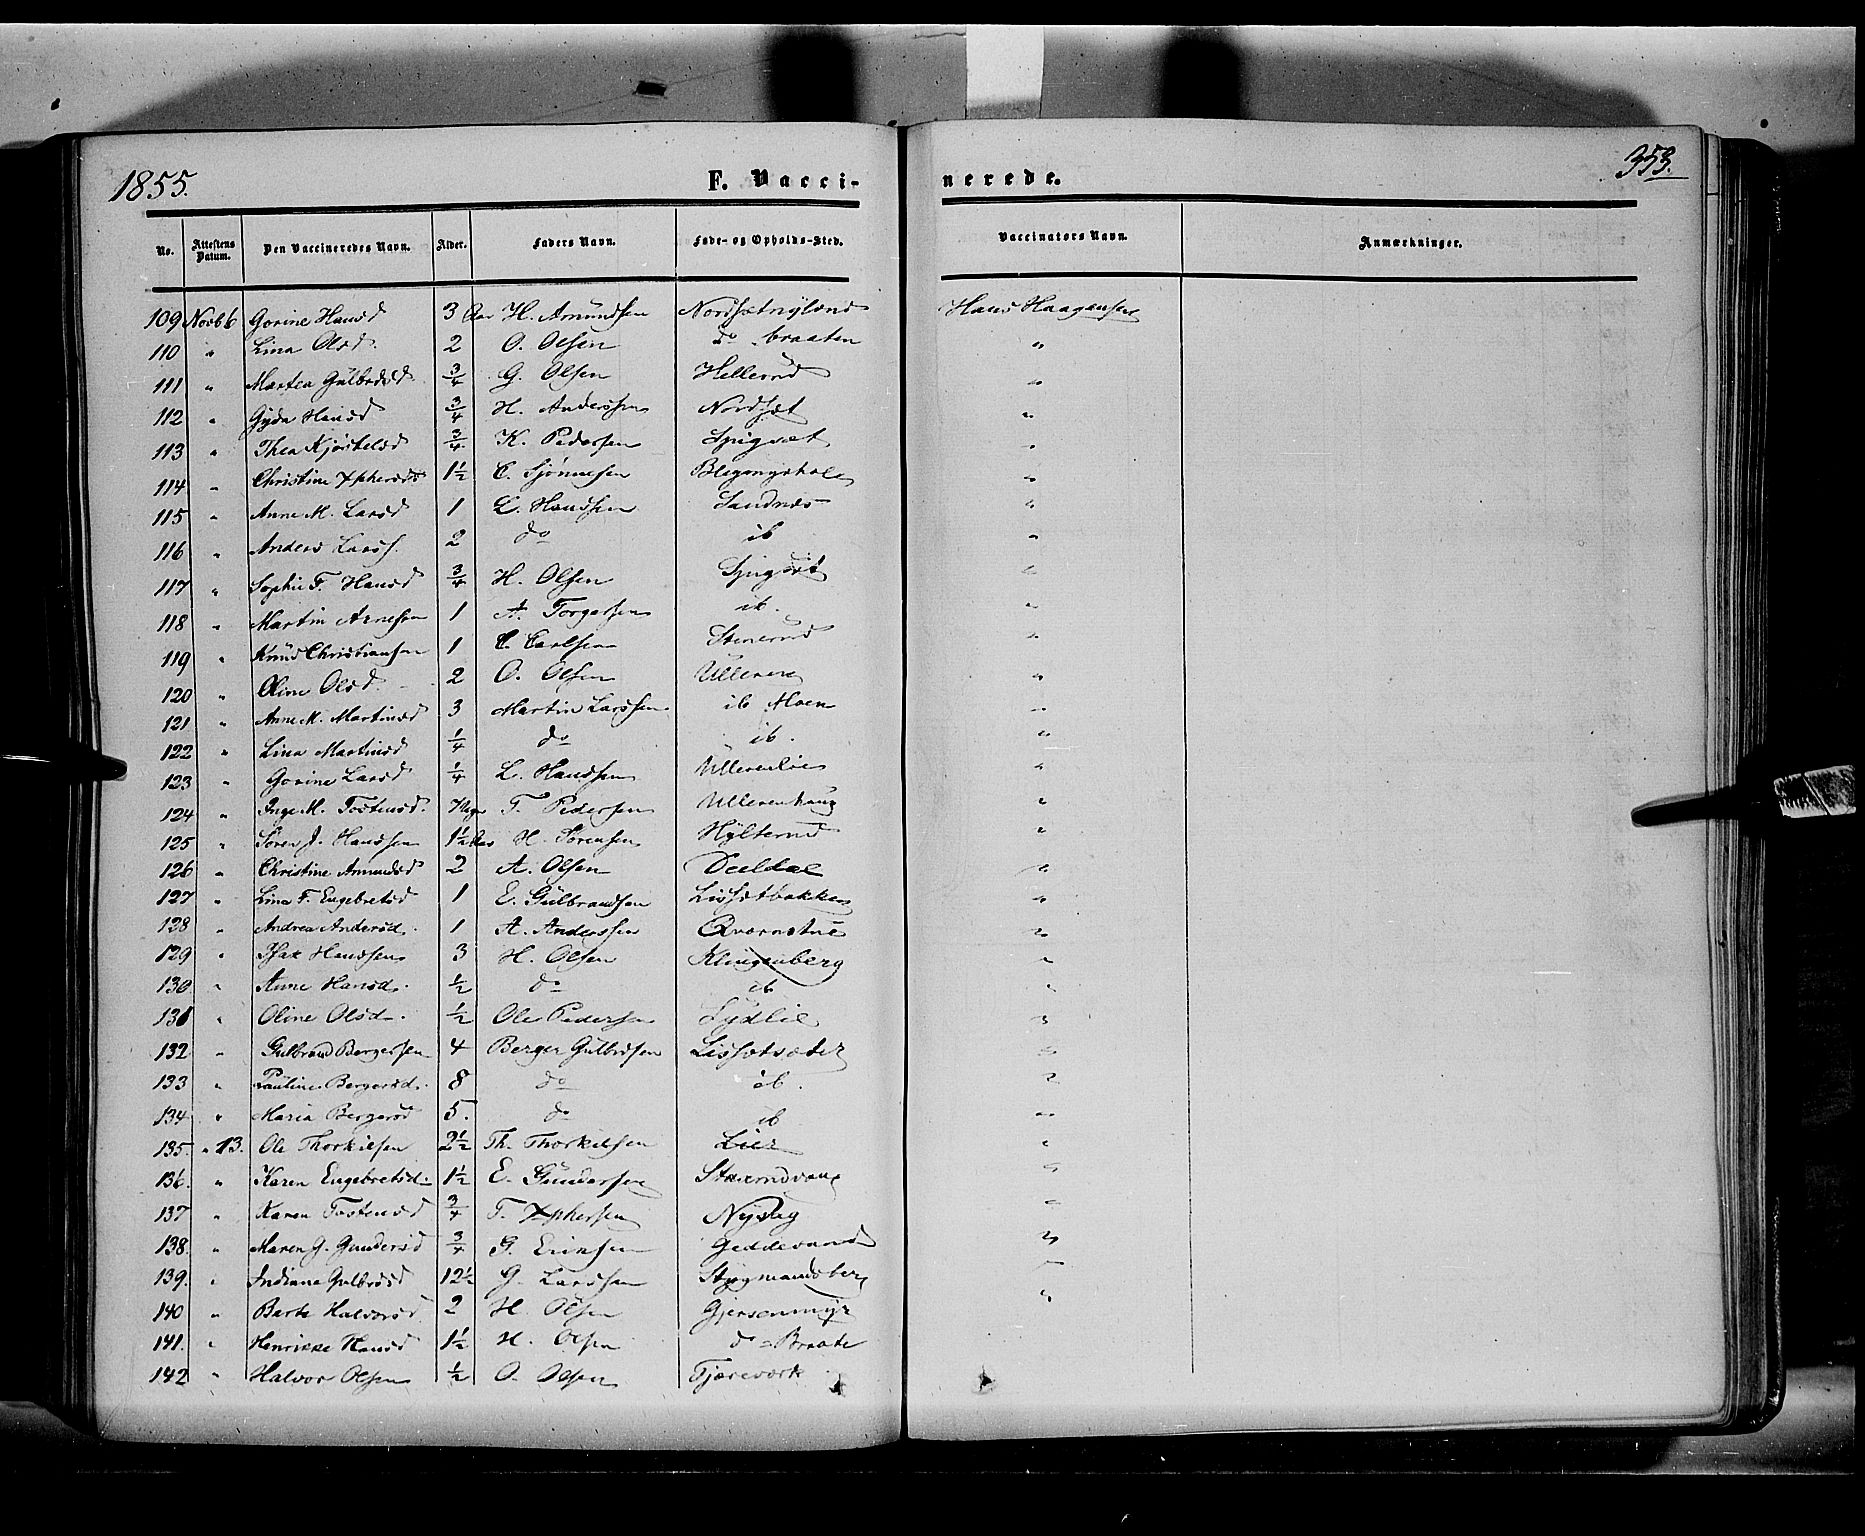 1855. F. Vacci- nerede. 353.
No. Attestens Datum. Den Vaccineredes Navn. Alder. Faders Navn. Føde- og Opholds-Sted. Vaccinators Navn. Anmærkninger.
109 Novb 6 Gorine Hansd 3 Aar H. Amundsen Nordsætnylænd Hans Haagensen
110 " Lina Olsd. 2 O. Olsen do braaten "
111 " Martea Gulbrdsd 3/4 G. Olsen Hellerud "
112 " Gyda Hansd 3/4 H. Anderssen Nordsæt "
113 " Thea Kjøstelsd 3/4 K. Pedersen Spigsæt "
114 " Christine Xphersd 1 1/2 C. Sjønnesen "
115 " Anne M. Larsd 1 L. Hanssen Sandnæs "
116 " Anders Larss. 2 do ib "
117 " Sophie F. Hansd 3/4 H. Olsen Spigsæt "
118 " Martin Arnesen 1 A. Torgersen ib. "
119 " Knud Christiansen 1 C. Carlsen Stenerud "
120 " Oline Olsd. 2 O. Olsen Ulleren "
121 " Anne M. Martinsd 3 Martin Larssen ib Moen "
122 " Lina Martinsd 1/4 do ib. "
123 " Gorine Larsd 1/4 L. Hanssen Ullerenlie "
124 " Inge M. Tostensd. 7 Uger T. Pedersen Ullerenhaug "
125 " Søren J. Hanssen 1 1/2 Aar H. Sørensen Hylterud "
126 " Christine Amundsd 2 A. Olsen Deeldal "
127 " Lina F. Engebretsd 1 E. Gulbrandsen Lissætbakken "
128 " Andrea Andersd. 1 A. Anderssen Qværnstue "
129 " Isak Hanssen 3 H. Olsen Klingenberg "
130 " Anne Hansd. 1/2 do ib "
131 " Oline Olsd. 1/2 Ole Pedersen Lydlie "
132 " Gulbrand Bergersen 4 Berger Gulbrdsen Lissætsæter "
133 " Pauline Bergersd. 8 do ib. "
134 " Maria Bergersd 5. do ib "
135. " 13. Ole Thorkilsen 2 1/2 Th. Thorkilsen Lier "
136. " Karen Engebretsd. 1 1/2 E. Gundersen "
137 " Karen Tostensd 3/4 T. Xphersen Nysteg "
138. " Maren G. Gundersd 3/4 G. Eriksen Geddevand "
139. " Indiana Gulbrdsd 12 1/2 G. Larssen Stygmandsberg "
140 " Berte Halvorsd 2 H. Olsen Gjersenmyr "
141. " Henrikke Hansd 1 1/2 H. Olsen do Braate
142 " Halvor Olsen 1/2 O. Olsen Tjæreværk